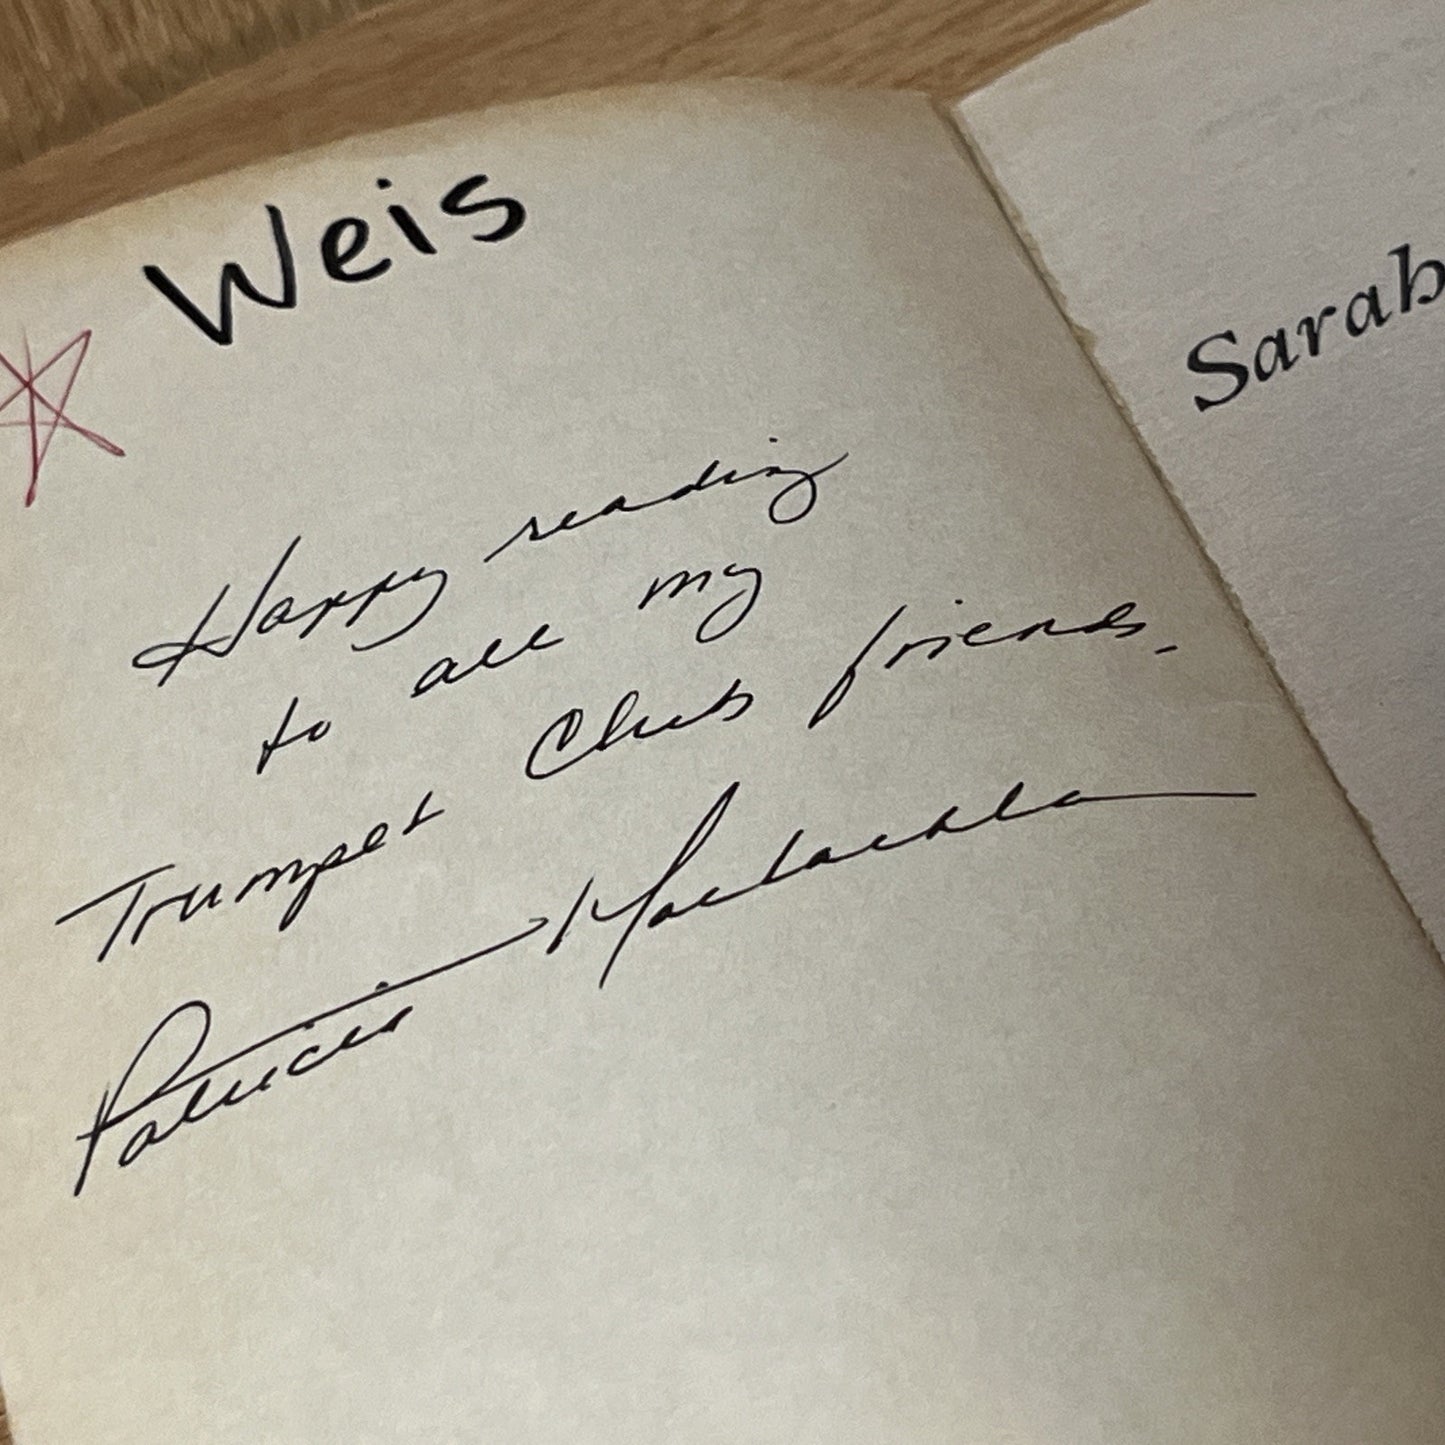 Weis
Happy reading
to all my
Trumpet Club friends.
Patricia MacLachlan
Sarah